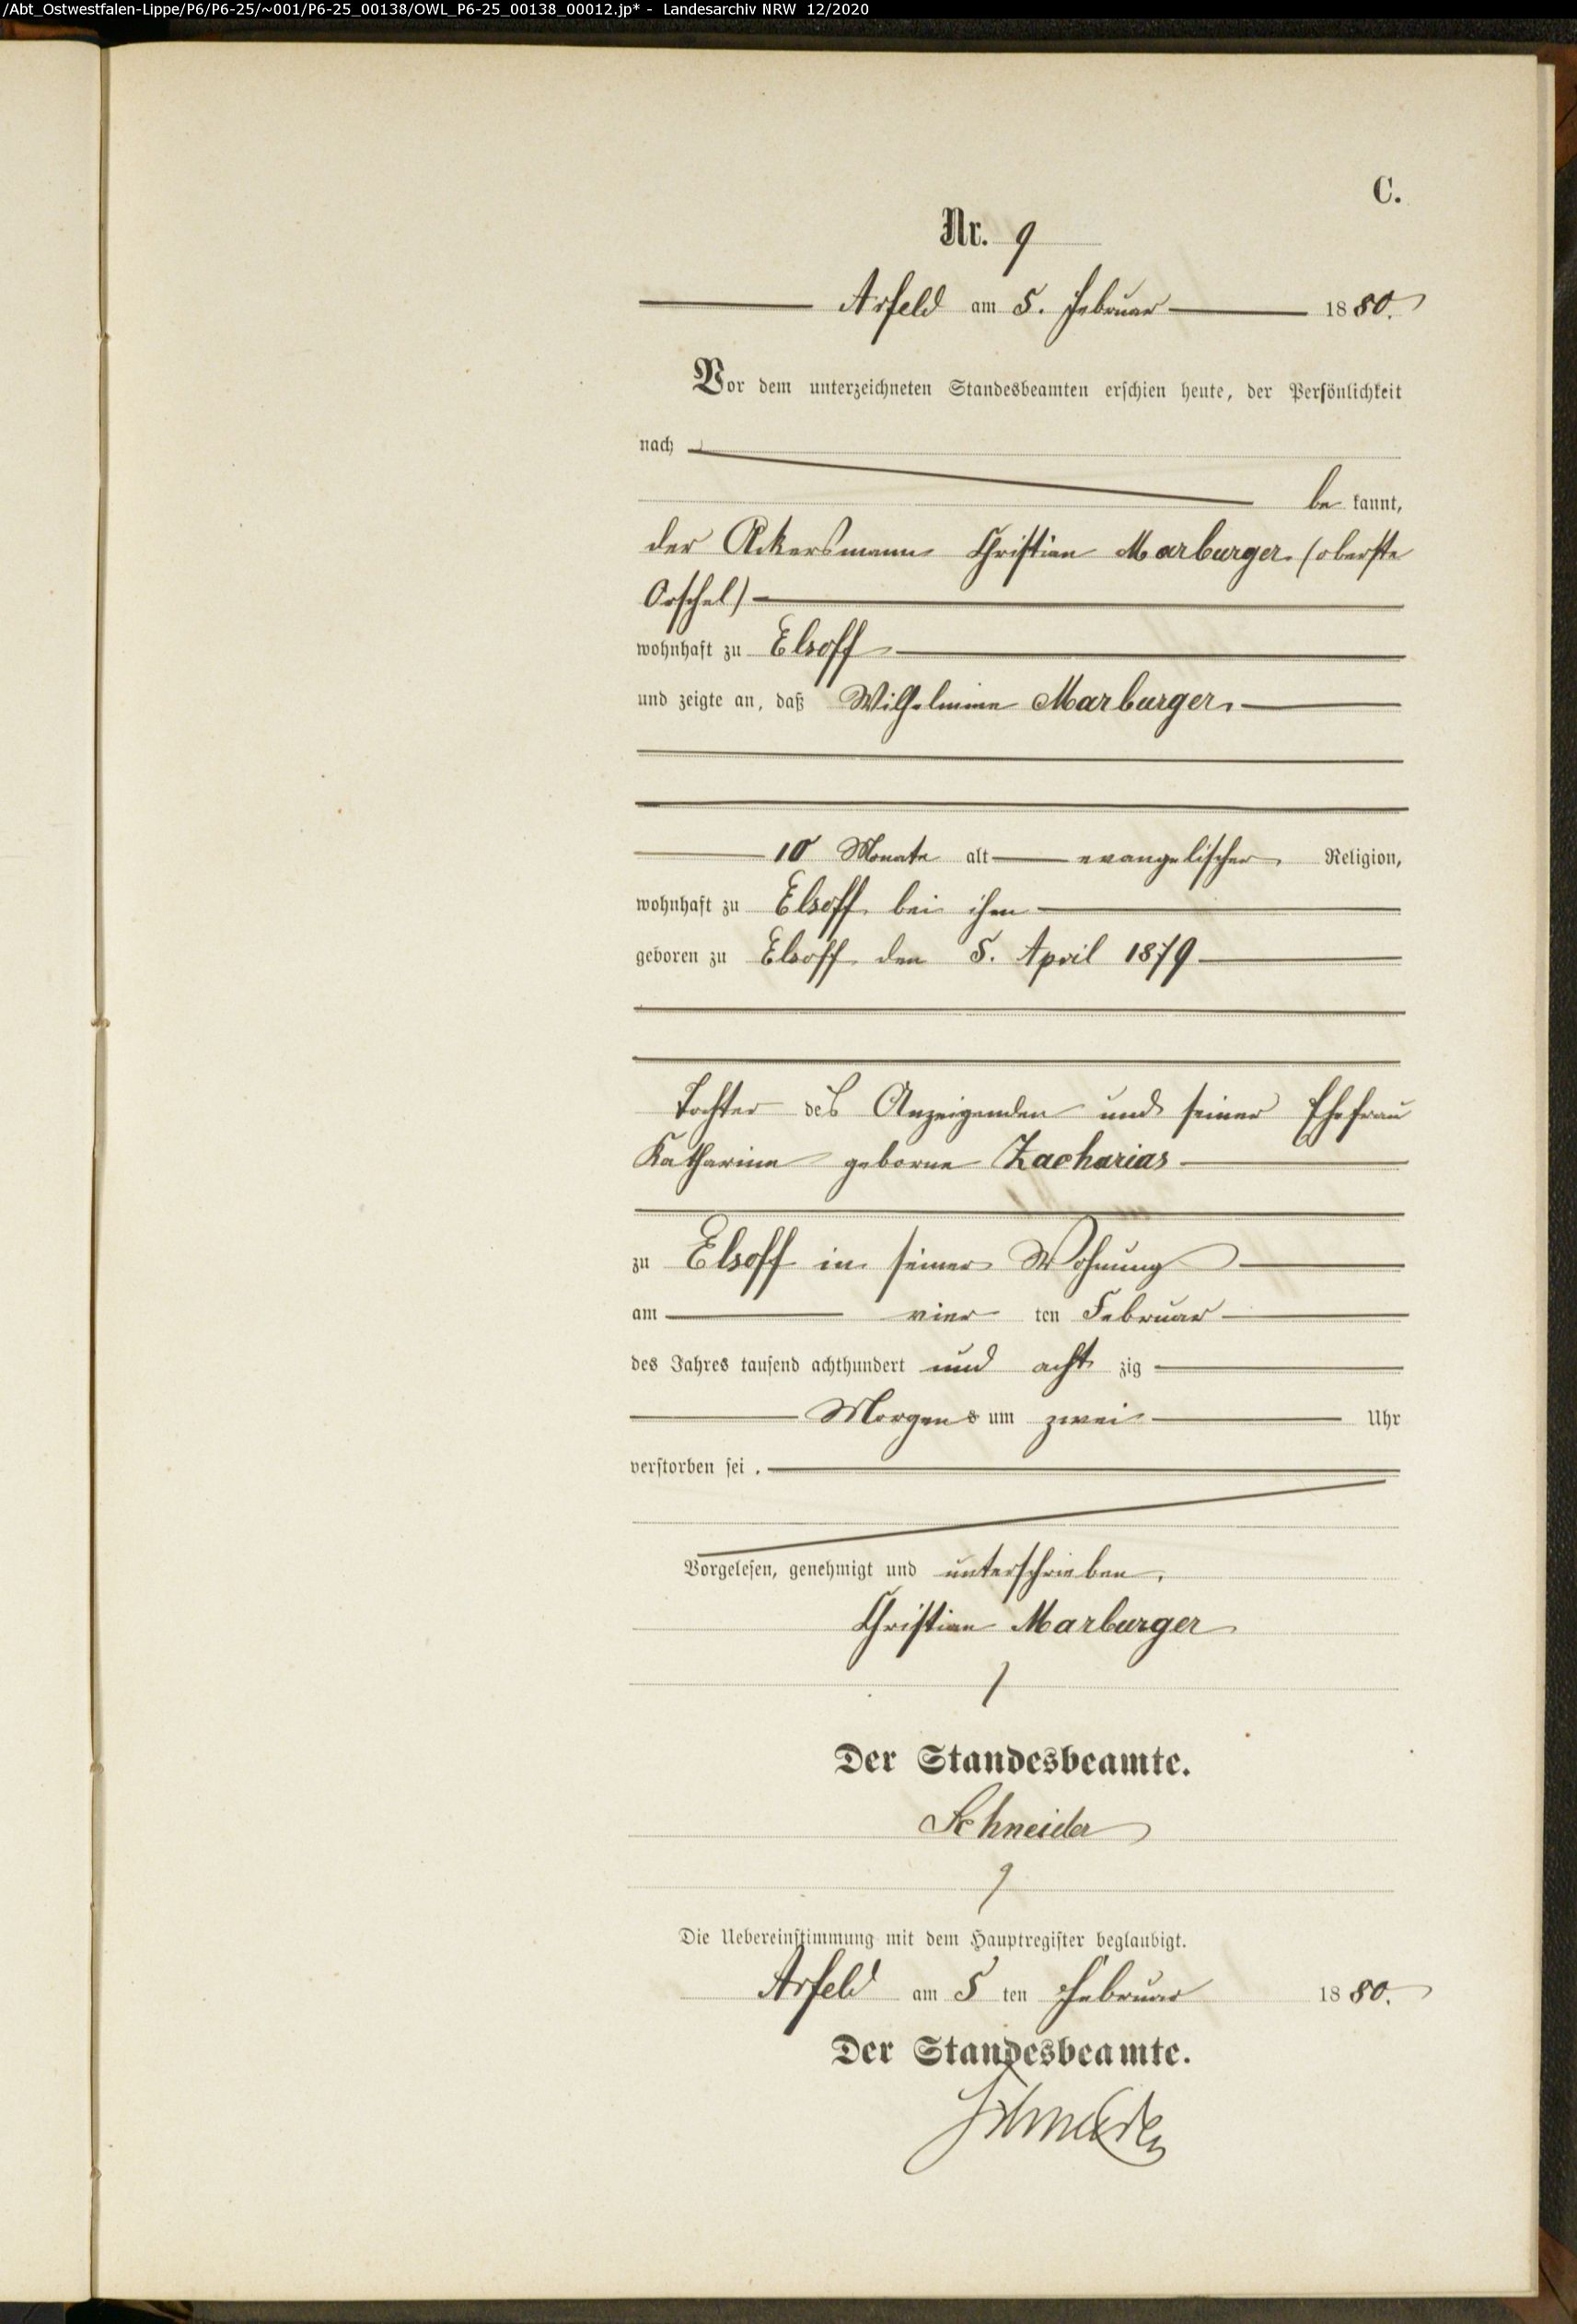 /Abt_Ostwestfalen-Lippe/P6/P6-25/~001/P6-25_00138/OWL_P6-25_00138_00012.jp* - Landesarchiv NRW 12/2020
C.
Nr. 9
Arfeld am 5. Februar 1880.
Vor dem unterzeichneten Standesbeamten erschien heute, der Persönlichkeit
nach
be kannt,
der Ackersmann Christian Marburger (oberste
Orschel)
wohnhaft zu Elsoff
und zeigte an, daß Wilhelmine Marburger,
10 Monate alt evangelischer Religion,
wohnhaft zu Elsoff bei ihm
geboren zu Elsoff den 5. April 1879
Tochter des Anzeigenden und seiner Ehefrau
Katharina geborne Zacharias
zu Elsoff in seiner Wohnung
am vier ten Februar
des Jahres tausend achthundert und acht zig
Morgens um zwei Uhr
verstorben sei.
Vorgelesen, genehmigt und unterschrieben.
Christian Marburger
Der Standesbeamte.
Schneider
Die Uebereinstimmung mit dem Hauptregister beglaubigt.
Arfeld am 5 ten Februar 1880.
Der Standesbeamte.
Schneider